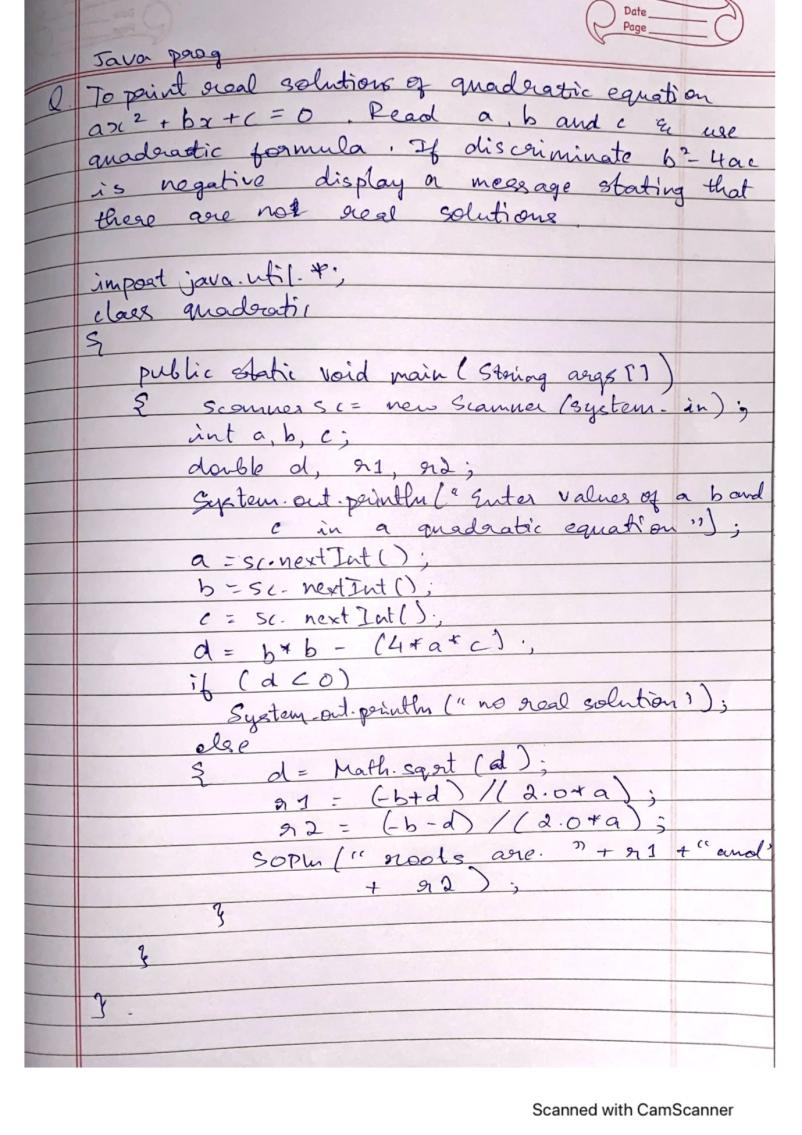 Date
Page
Java prog
Q. To print real solutions of quadratic equation
ax² + bx + c = 0 . Read a, b and c & use
quadrastic formula . If discriminate b² - 4ac
is negative display a message stating that
there are not real solutions
import java.util.*;
class quadratic
{
public static void main (String args [])
{ Scanner sc = new Scanner (system.in);
int a, b, c;
double d, r1, r2;
System.out.println (" Enter values of a b and
c in a quadratic equation ");
a = sc.nextInt();
b = sc.nextInt();
c = sc.nextInt();
d = b*b - (4*a*c);
if (d < 0)
System.out.println (" no real solution ");
else
{ d = Math.sqrt (d);
r1 = (-b+d) /( 2.0*a );
r2 = (-b-d) /( 2.0*a );
SOPln (" roots are. " + r1 + " and"
+ r2 );
}
}
}.
Scanned with CamScanner